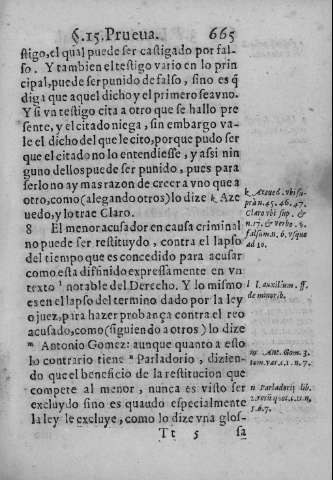 §.15. Prueua. 665
stigo, el qual puede ser castigado por fal-
so. Y tambien el testigo vario en lo prin
cipal, puede ser punido de falso, sino es q̃
diga que aquel dicho y el primero sea vno.
Y si vn testigo cita a otro que se hallo pre
sente, y el citado niega, sin embargo va-
le el dicho del que le cito, porque pudo ser
que el citado no lo entendiesse, y assi nin
guno dellos puede ser punido, pues para
ser lo no ay mas razon de creer a vno que a
otro, como (alegando otros) lo dize k Aze
uedo, y lo trae Claro.
8 El menor acusador en causa criminal
no puede ser restituydo, contra el lapso
del tiempo que es concedido para acusar
como esta difinido expressamente en vn
texto l notable del Derecho. Y lo mismo
es en el lapso del termino dado por la ley
o juez, para hazer probança contra el reo
acusado, como (siguiendo a otros) lo dize
m Antonio Gomez: aunque quanto a esto
lo contrario tiene n Parladorio, dizien-
do que el beneficio de la restitucion que
compete al menor, nunca es visto ser
excluydo sino es quando especialmente
la ley le excluye, como lo dize vna glos-
Tt 5 sa
k Azeued. vbi su-
prà n. 45. 46. 47.
Claro vbi sup. &
n. 17. & verbo 3.
falsum. n. 6. vsque
ad 10.
l l. auxilium. ff.
de minorib.
m Ant. Gom. 3.
tom. var. c. 1. n. 7.
n Parladorij lib.
2. rer. quot. c. 11. n.
1. 6. 7.